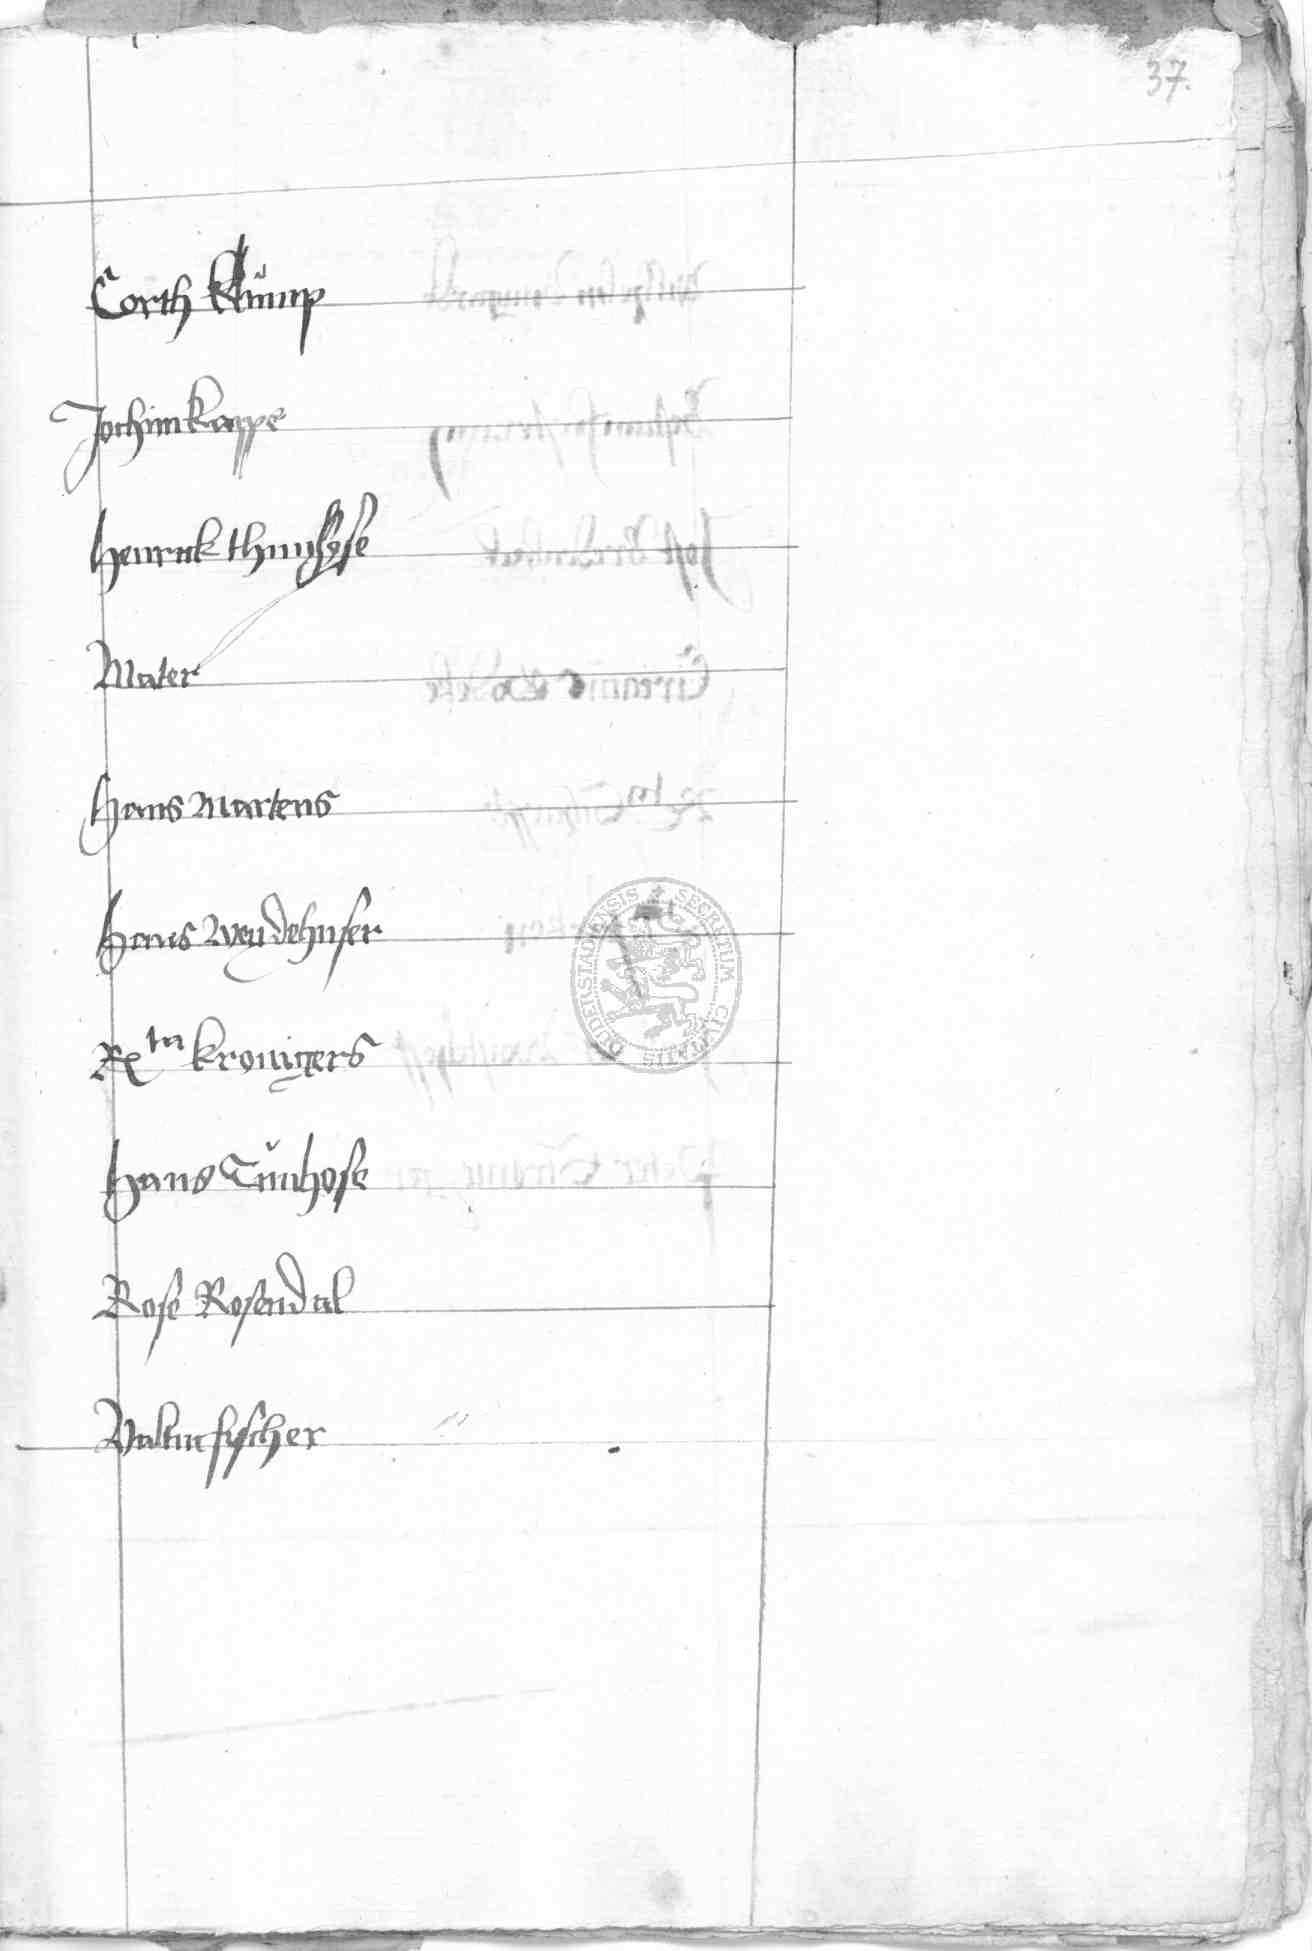 37.
Corth Klump
Jochim kappe
Henrick thun hose
Maler
Hans Martens
Hans Wendehuser
Rcta kronigers
Hans Tunhose
Rose Rosendal
Valtin fyscher
SECRETUM CIVITATIS DUDERSTADIENSIS